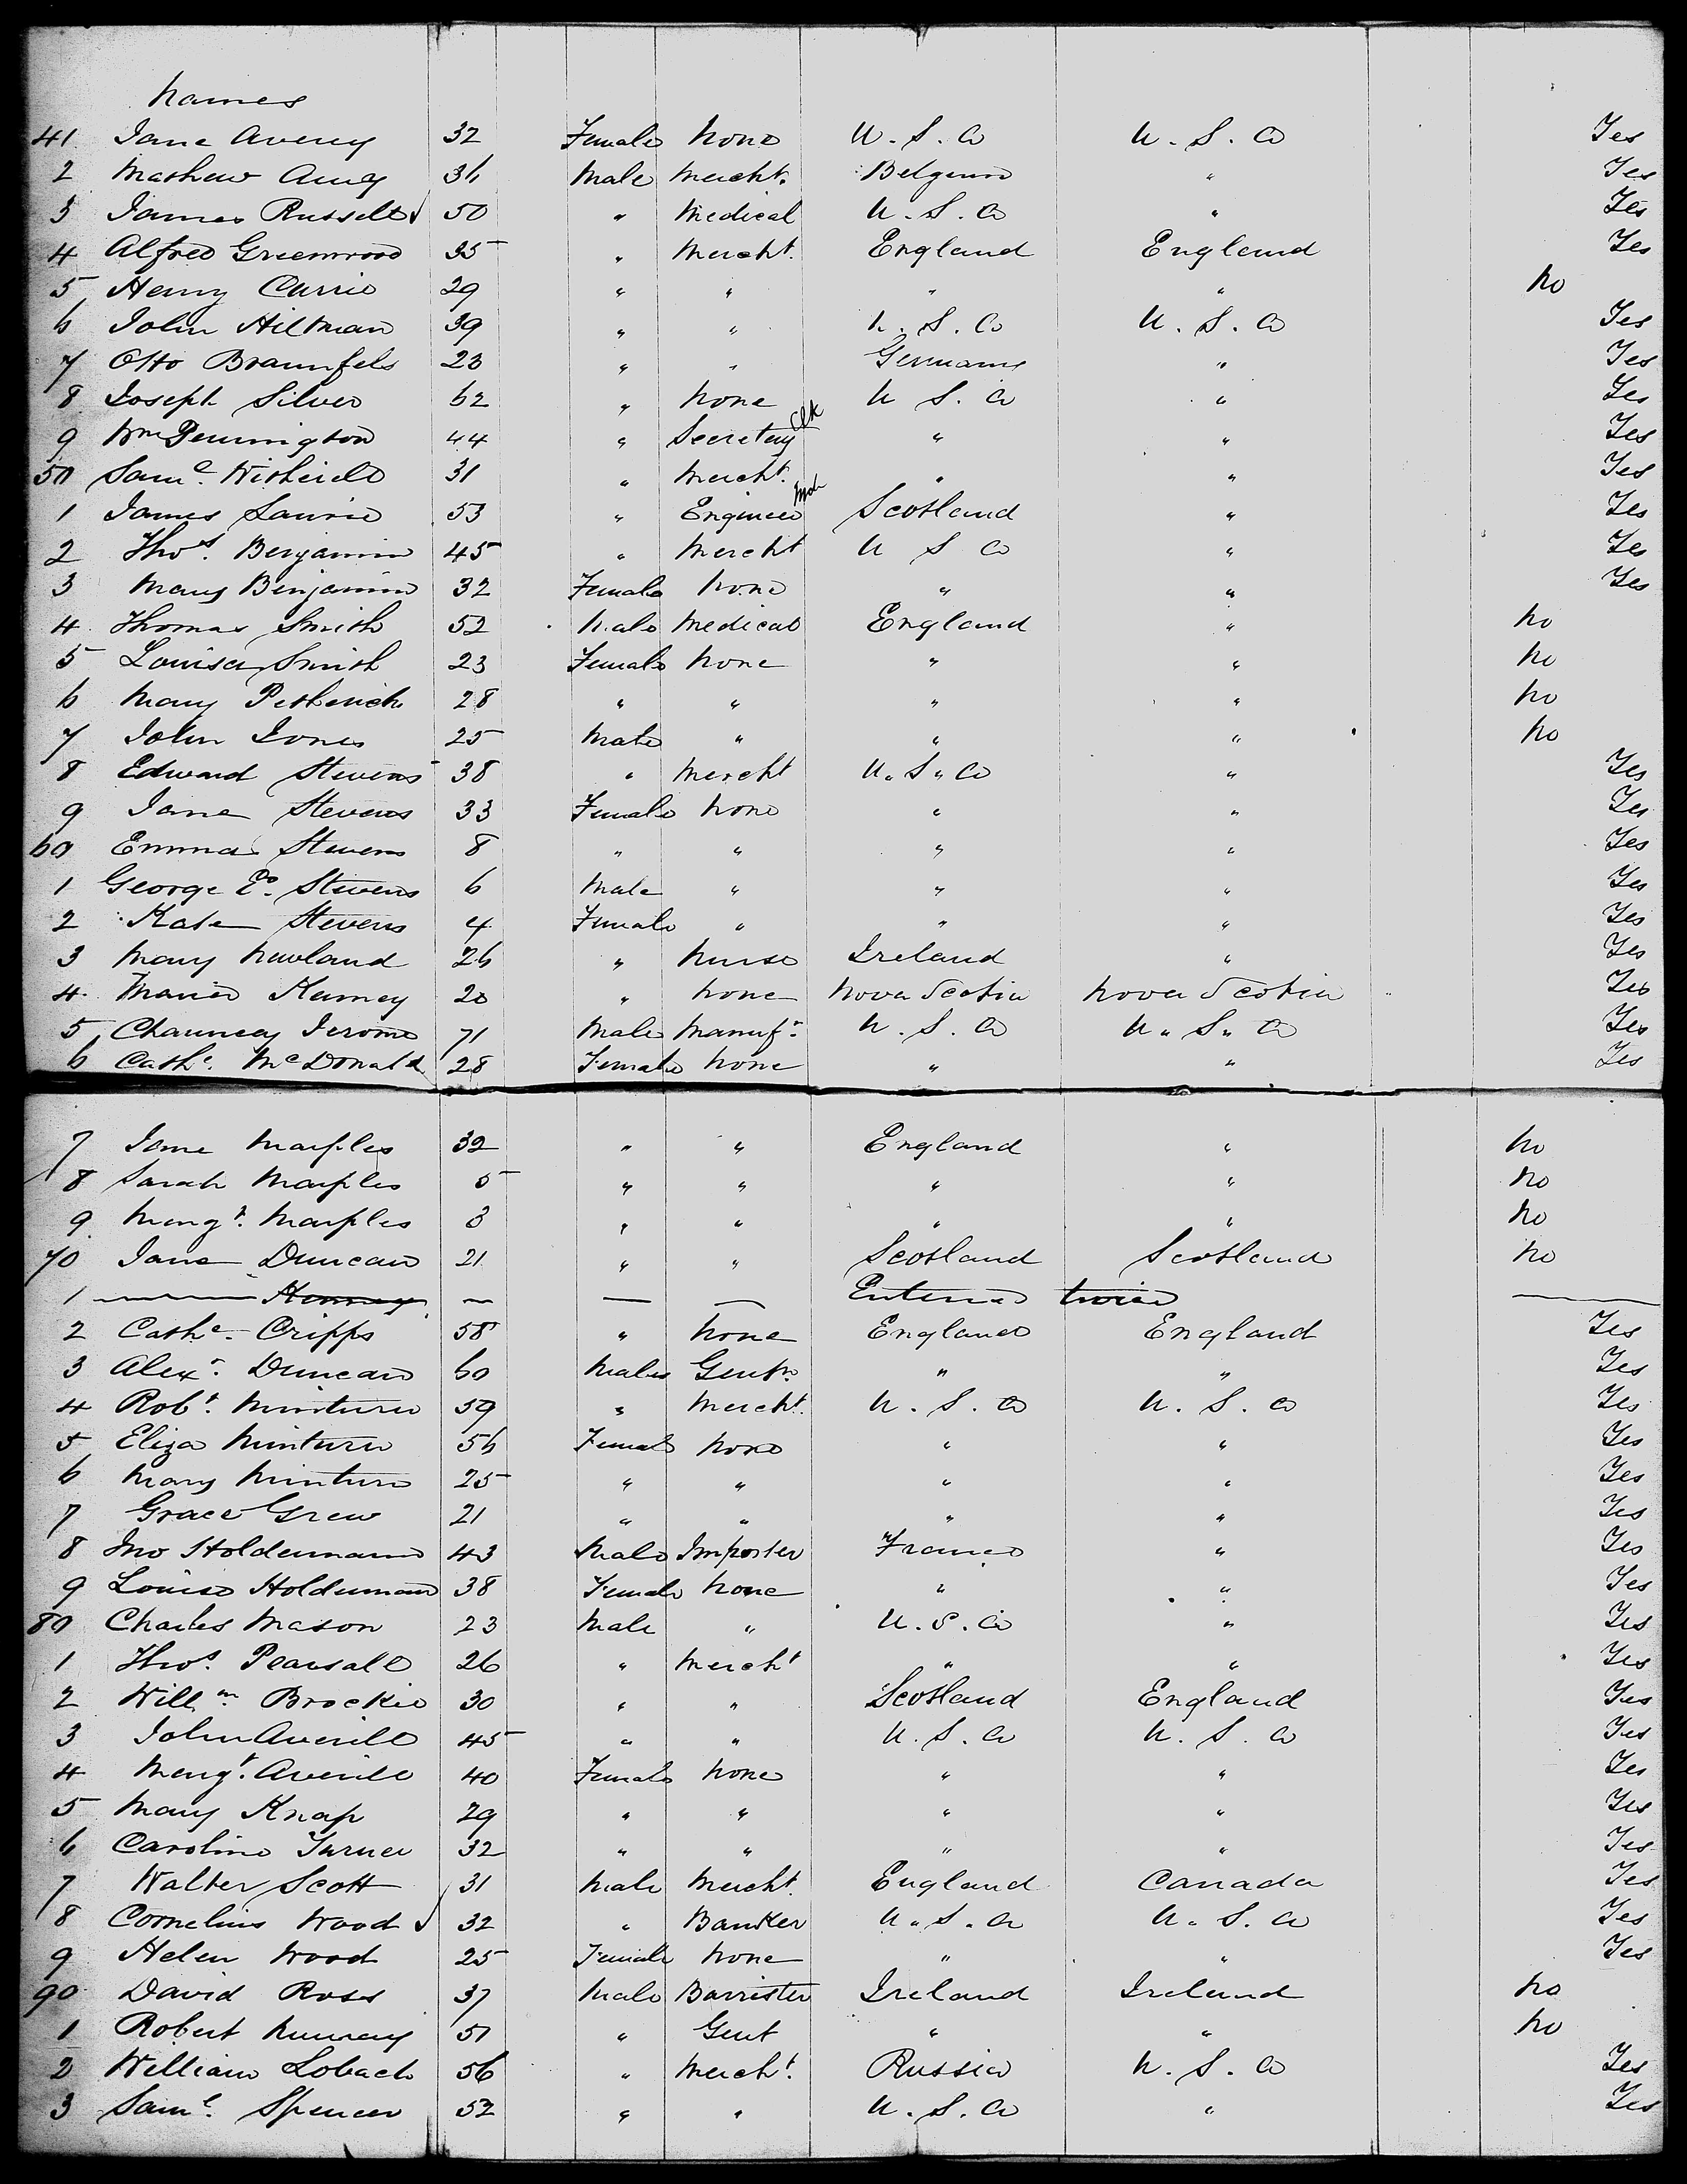 Names
41 Jane Avery 32 Female None U. S. A U. S. A Yes
2 Mathew Amy 36 Male Mercht. Belgium " Yes
3 James Russell 50 " Medical U. S. A " Yes
4 Alfred Greenwood 35 " Mercht. England England Yes
5 Henry Currie 29 " " " " No
6 John Hillman 39 " " U. S. A U. S. A Yes
7 Otto Braunfels 23 " " Germany " Yes
8 Joseph Silver 62 " None U S. A " Yes
9 Wm Pennington 44 " Secretary Clk " " Yes
50 Saml. 31 " Mercht. " " Yes
1 James Laurie 53 " Engineer Scotland " Yes
2 Thos. Benjamin 45 " Mercht U S A " Yes
3 Mary Benjamin 32 Female None " " Yes
4 Thomas Smith 52 Male Medical England " No
5 Louisa Smith 23 Female None " " No
6 Mary Petherick 28 " " " " No
7 John Jones 25 Male " " " No
8 Edward Stevens 38 " Mercht U. S. A " Yes
9 Jane Stevens 33 Female None " " Yes
60 Emma Stevens 8 " " " " Yes
1 George Eo. Stevens 6 Male " " " Yes
2 Kate Stevens 4 Female " " " Yes
3 Mary Newland 26 " Nurse Ireland " Yes
4 Maria Kenney 20 " None Nova Scotia Nova Scotia Yes
5 Chauncey Jerome 71 Male Manufr. U. S. A U. S. A Yes
6 Cathe. McDonald 28 Female None " " Yes
7 Jane Marples 32 " " England " No
8 Sarah Marples 5 " " " " No
9 Margt. Marples 3 " " " " No
70 Jane Duncan 21 " " Scotland Scotland No
1 Kenney Entered twice
2 Cathe. Cripps 58 " None England England Yes
3 Alexr. Duncan 60 Male Gentn. " " Yes
4 Robt. Minturn 59 " Mercht. U. S. A U. S. A Yes
5 Eliza Minturn 56 Female None " " Yes
6 Mary Minturn 25 " " " " Yes
7 Grace Grew 21 " " " " Yes
8 Jno Holdermann 43 Male Importer France " Yes
9 Louise Holdermann 38 Female None " " Yes
80 Charles Mason 23 Male " U. S. A " Yes
1 Thos. Pearsall 26 " Mercht " " Yes
2 Willm. Brockie 30 " " Scotland England Yes
3 John Averill 45 " " U. S. A U. S. A Yes
4 Margt. Averill 40 Female None " " Yes
5 Mary Knap 29 " " " " Yes
6 Caroline Turner 32 " " " " Yes
7 Walter Scott 31 Male Mercht. England Canada Yes
8 Cornelius Wood 32 " Banker U. S. A U. S. A Yes
9 Helen Wood 25 Female None " " Yes
90 David Ross 37 Male Barrister Ireland Ireland No
1 Robert Murray 51 " Gent " " No
2 William Lobach 56 " Mercht. Russia U. S. A Yes
3 Saml. Spencer 52 " " U. S. A " Yes